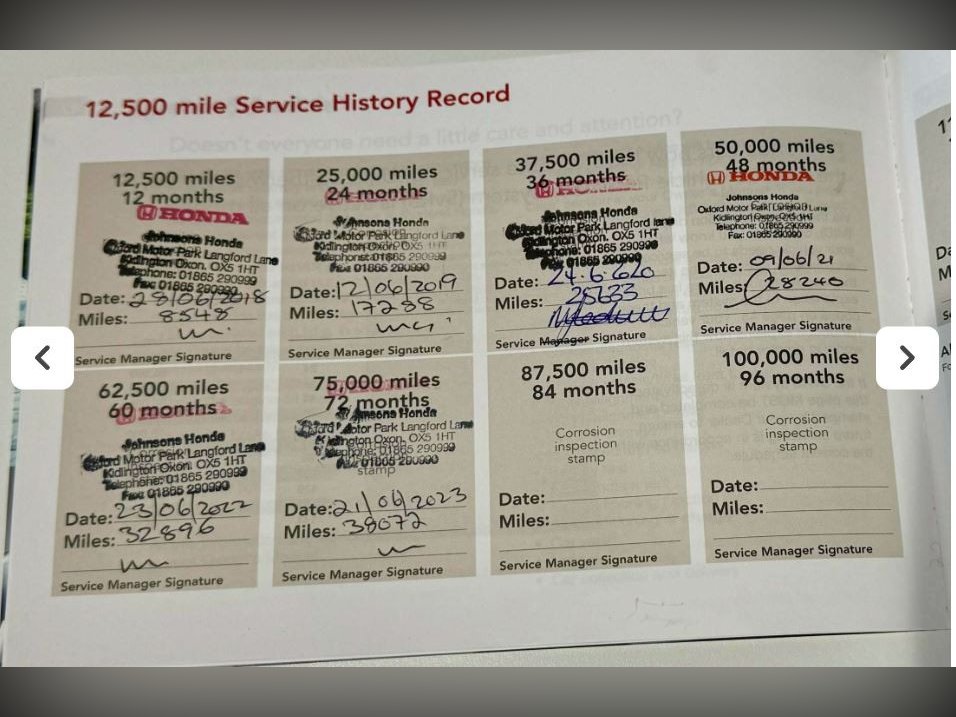 12,500 mile Service History Record
12,500 miles
12 months
HONDA
Johnsons Honda
Oxford Motor Park Langford Lane
Kidlington Oxon. OX5 1HT
Telephone: 01865 290999
Fax 01865 290990
Date: 28/06/2018
Miles: 8548
Service Manager Signature
25,000 miles
24 months
Johnsons Honda
Oxford Motor Park Langford Lane
Kidlington Oxon. OX5 1HT
Telephone: 01865 290999
Fax 01865 290990
Date: 12/06/2019
Miles: 17288
Service Manager Signature
37,500 miles
36 months
Johnsons Honda
Oxford Motor Park Langford lane
Kidlington Oxon. OX5 1HT
Telephone: 01865 290999
Fax 01865 290990
Date: 24.6.
Miles: 25633
Service Manager Signature
50,000 miles
48 months
HONDA
Johnsons Honda
Oxford Motor Park Langford Lane
Kidlington Oxon, OX5 1HT
Telephone: 01865 290999
Fax: 01865 290990
Date: 09/06/21
Miles: 28240
Service Manager Signature
62,500 miles
60 months
Johnsons Honda
Oxford Motor Park Langford Lane
Kidlington Oxon. OX5 1HT
Telephone: 01865 290999
Fax 01865 290990
Date: 23/06/2022
Miles: 32896
Service Manager Signature
75,000 miles
72 months
Johnsons Honda
Oxford Motor Park Langford Lane
Kidlington Oxon. OX5 1HT
Telephone: 01865 290999
Fax 01865 290990
stamp
Date: 21/06/2023
Miles: 38072
Service Manager Signature
87,500 miles
84 months
Corrosion
inspection
stamp
Date:
Miles:
Service Manager Signature
100,000 miles
96 months
Corrosion
inspection
stamp
Date:
Miles:
Service Manager Signature